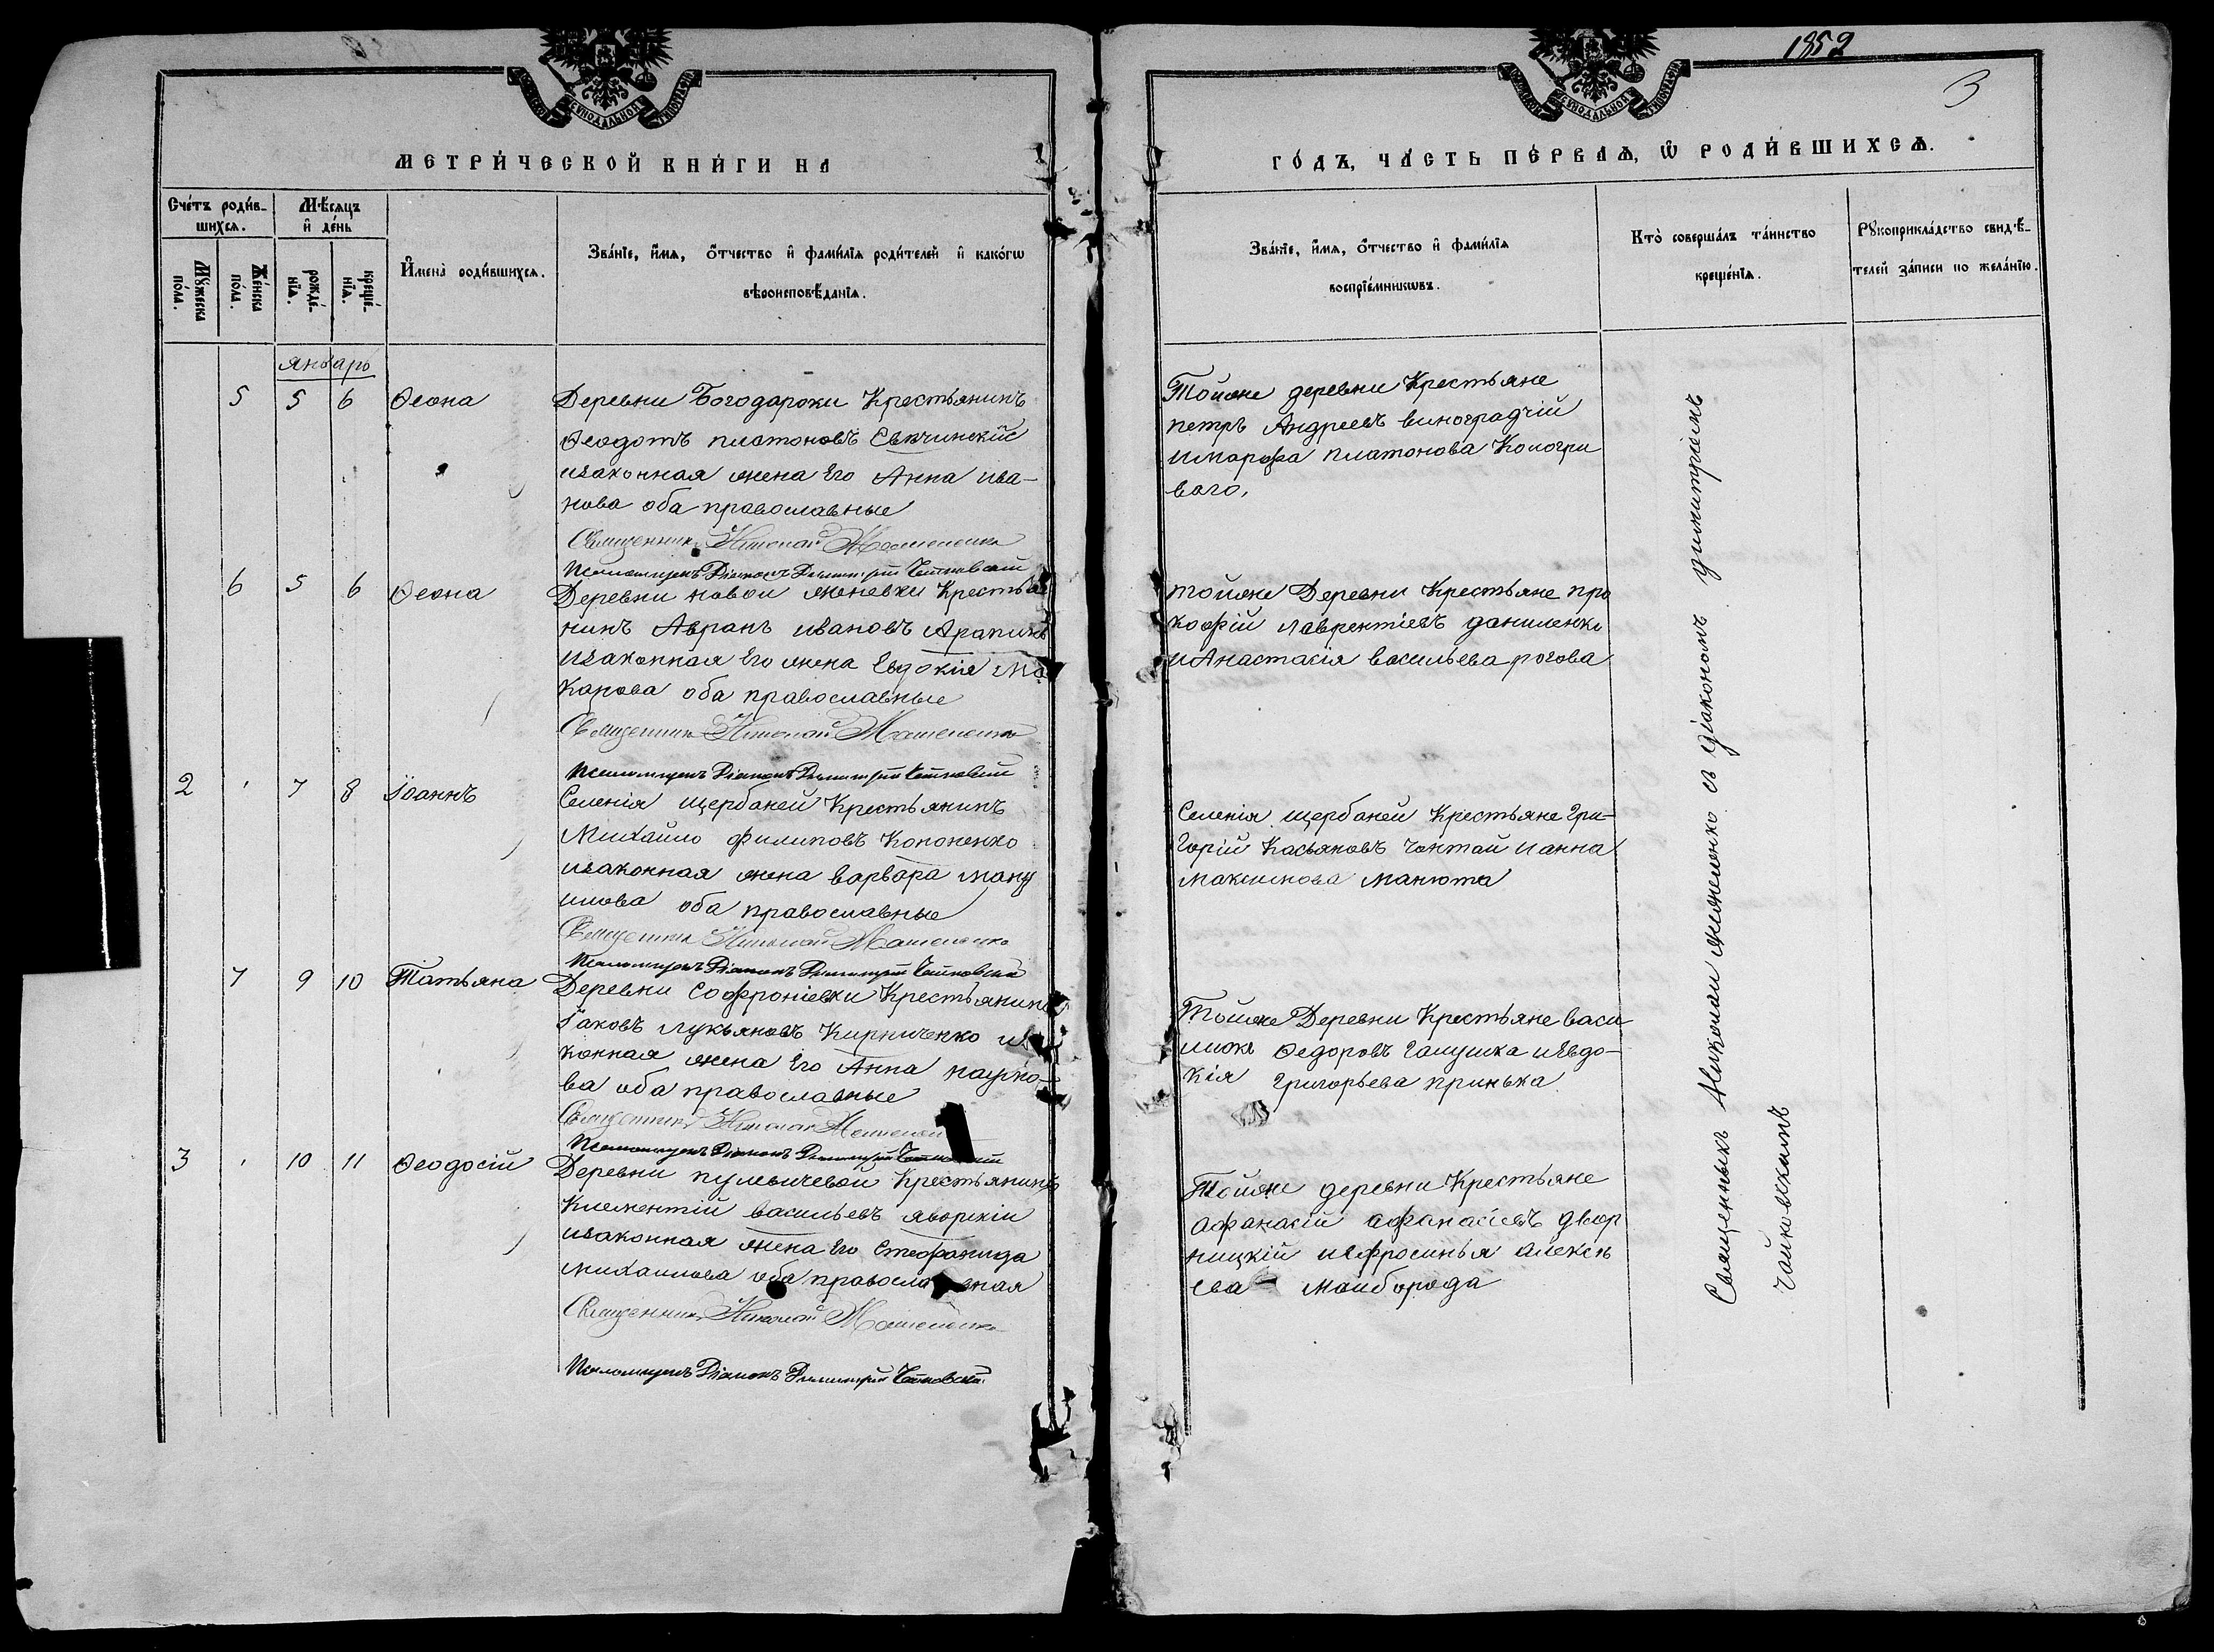 1852
3
СѴНОДАЛЬНОЙ
СѴНОДАЛЬНОЙ
МЕТРИ́ЧЕСКОЙ КНИ́ГИ НА
ГО́ДЪ, ЧА́СТЬ ПЕ́РВАЯ, Ѡ РОДИ́ВШИХСЯ.
Сче́тъ роди́в-
шихся.
Мꙋ́жеска
по́ла.
Же́нска
по́ла.
Мѣ́сяцъ
и де́нь
рожде́-
нїя.
креще́-
нїя.
Имена̀ роди́вшихся.
Зва́нїе, и́мя, о́тчество и фами́лїя роди́телей и како́гѡ
вѣроисповѣ́данїя.
Зва́нїе, и́мя, о́тчество и фами́лїя
воспрїе́мникѡвъ.
Кто̀ соверша́лъ та́инство
креще́нїя.
Рꙋкоприкла́дство свидѣ́-
телей за́писи по жела́нїю.
январь
5 5 6 Ѳеона
Деревни Богодаровки Крестьянинъ
Ѳеодотъ платоновъ
изаконная жена Его Анна ива-
нова оба православные
Священникъ Николай
Псаломщикъ Діаконъ Димитрій Чайковскій
Тойже деревни Крестьяне
петръ Андреевъ виноградчій
имарфа платонова Кологри
ваго.
6 5 6 Ѳеона
Деревни новой Крестья
нинъ ивановъ
изаконная Его жена Евдокія Ма
карова оба православные
Священникъ Николай
Псаломщикъ Діаконъ Димитрій Чайковскій
тойже Деревни Крестьяне про
кофій лаврентіевъ даниленко
иАнастасія васильева рогова
2 7 8 Іоаннъ
Селенія щербаней Крестьянинъ
Михайло филиповъ Кононенко
изаконная жена варвара ману
илова оба православные
Священникъ Николай
Псаломщикъ Діаконъ Димитрій Чайковскій
Селенія щербаней Крестьяне Гри-
горій Касьяновъ ианна
максимова манюта
7 9 10 Татьяна
Деревни Софроніевки Крестьянинъ
Іаковъ лукьяновъ Кирпиченко
конная жена Его Анна наумо-
ва оба православные
Священникъ Николай
Псаломщикъ Діаконъ Димитрій
Тойже Деревни Крестьяне васи
Ѳедоровъ галушка иЕвдо-
кія григорьева принька
3 10 11 Ѳеодосій
Деревни Крестьянинъ
Климентій васильевъ яворскій
изаконная жена Его Стефанида
михаилова оба православная
Священникъ Николай
Псаломщикъ Діаконъ Димитрій Чайковскій
Тойже деревни Крестьяне
афанасій афанасіевъ двор
ницкій иЕфросинья алексѣ
ева майборода
Священникъ Николай съ діакономъ димитріемъ
чайковскимъ